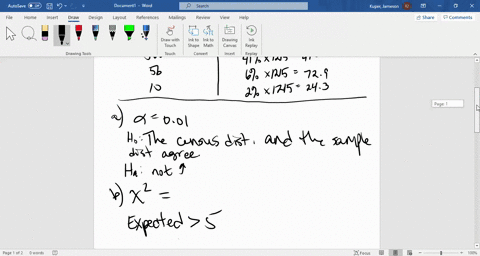 AutoSave Off Document1 - Word Kuper, Jameson
File Home Insert Draw Design Layout References Mailings Review View Help Search Share Comments
Draw with Touch
Ink to Shape
Ink to Math
Drawing Canvas
Ink Replay
Drawing Tools Touch Convert Insert Replay
56 6% x1215 = 72.9
10 2% x1215 = 24.3
Page 1
a) α = 0.01
H0: The census dist. and the sample
dist agree
HA: not ↑
b) x² =
Expected > 5
Page 1 of 2 0 words Focus 100%